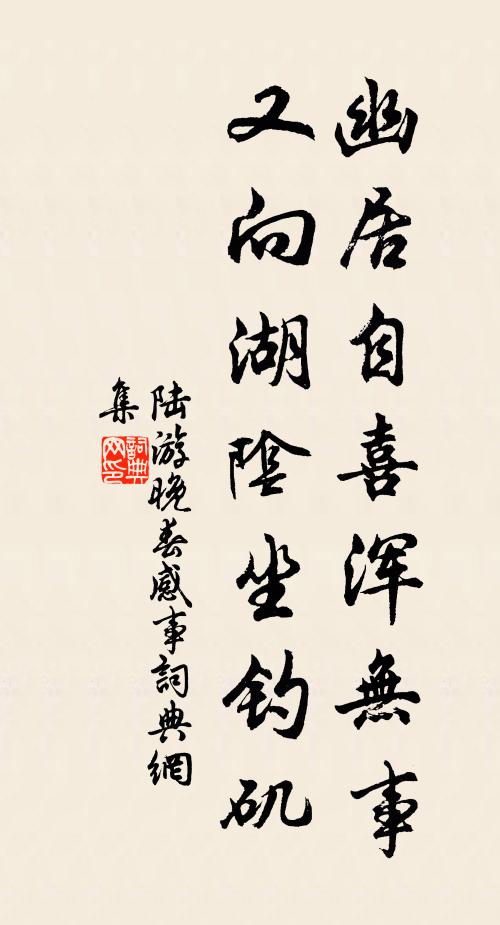 幽居自喜浑無事
又向湖陰坐钓矶
陆游晚春感事詞典網
集
詞典网印